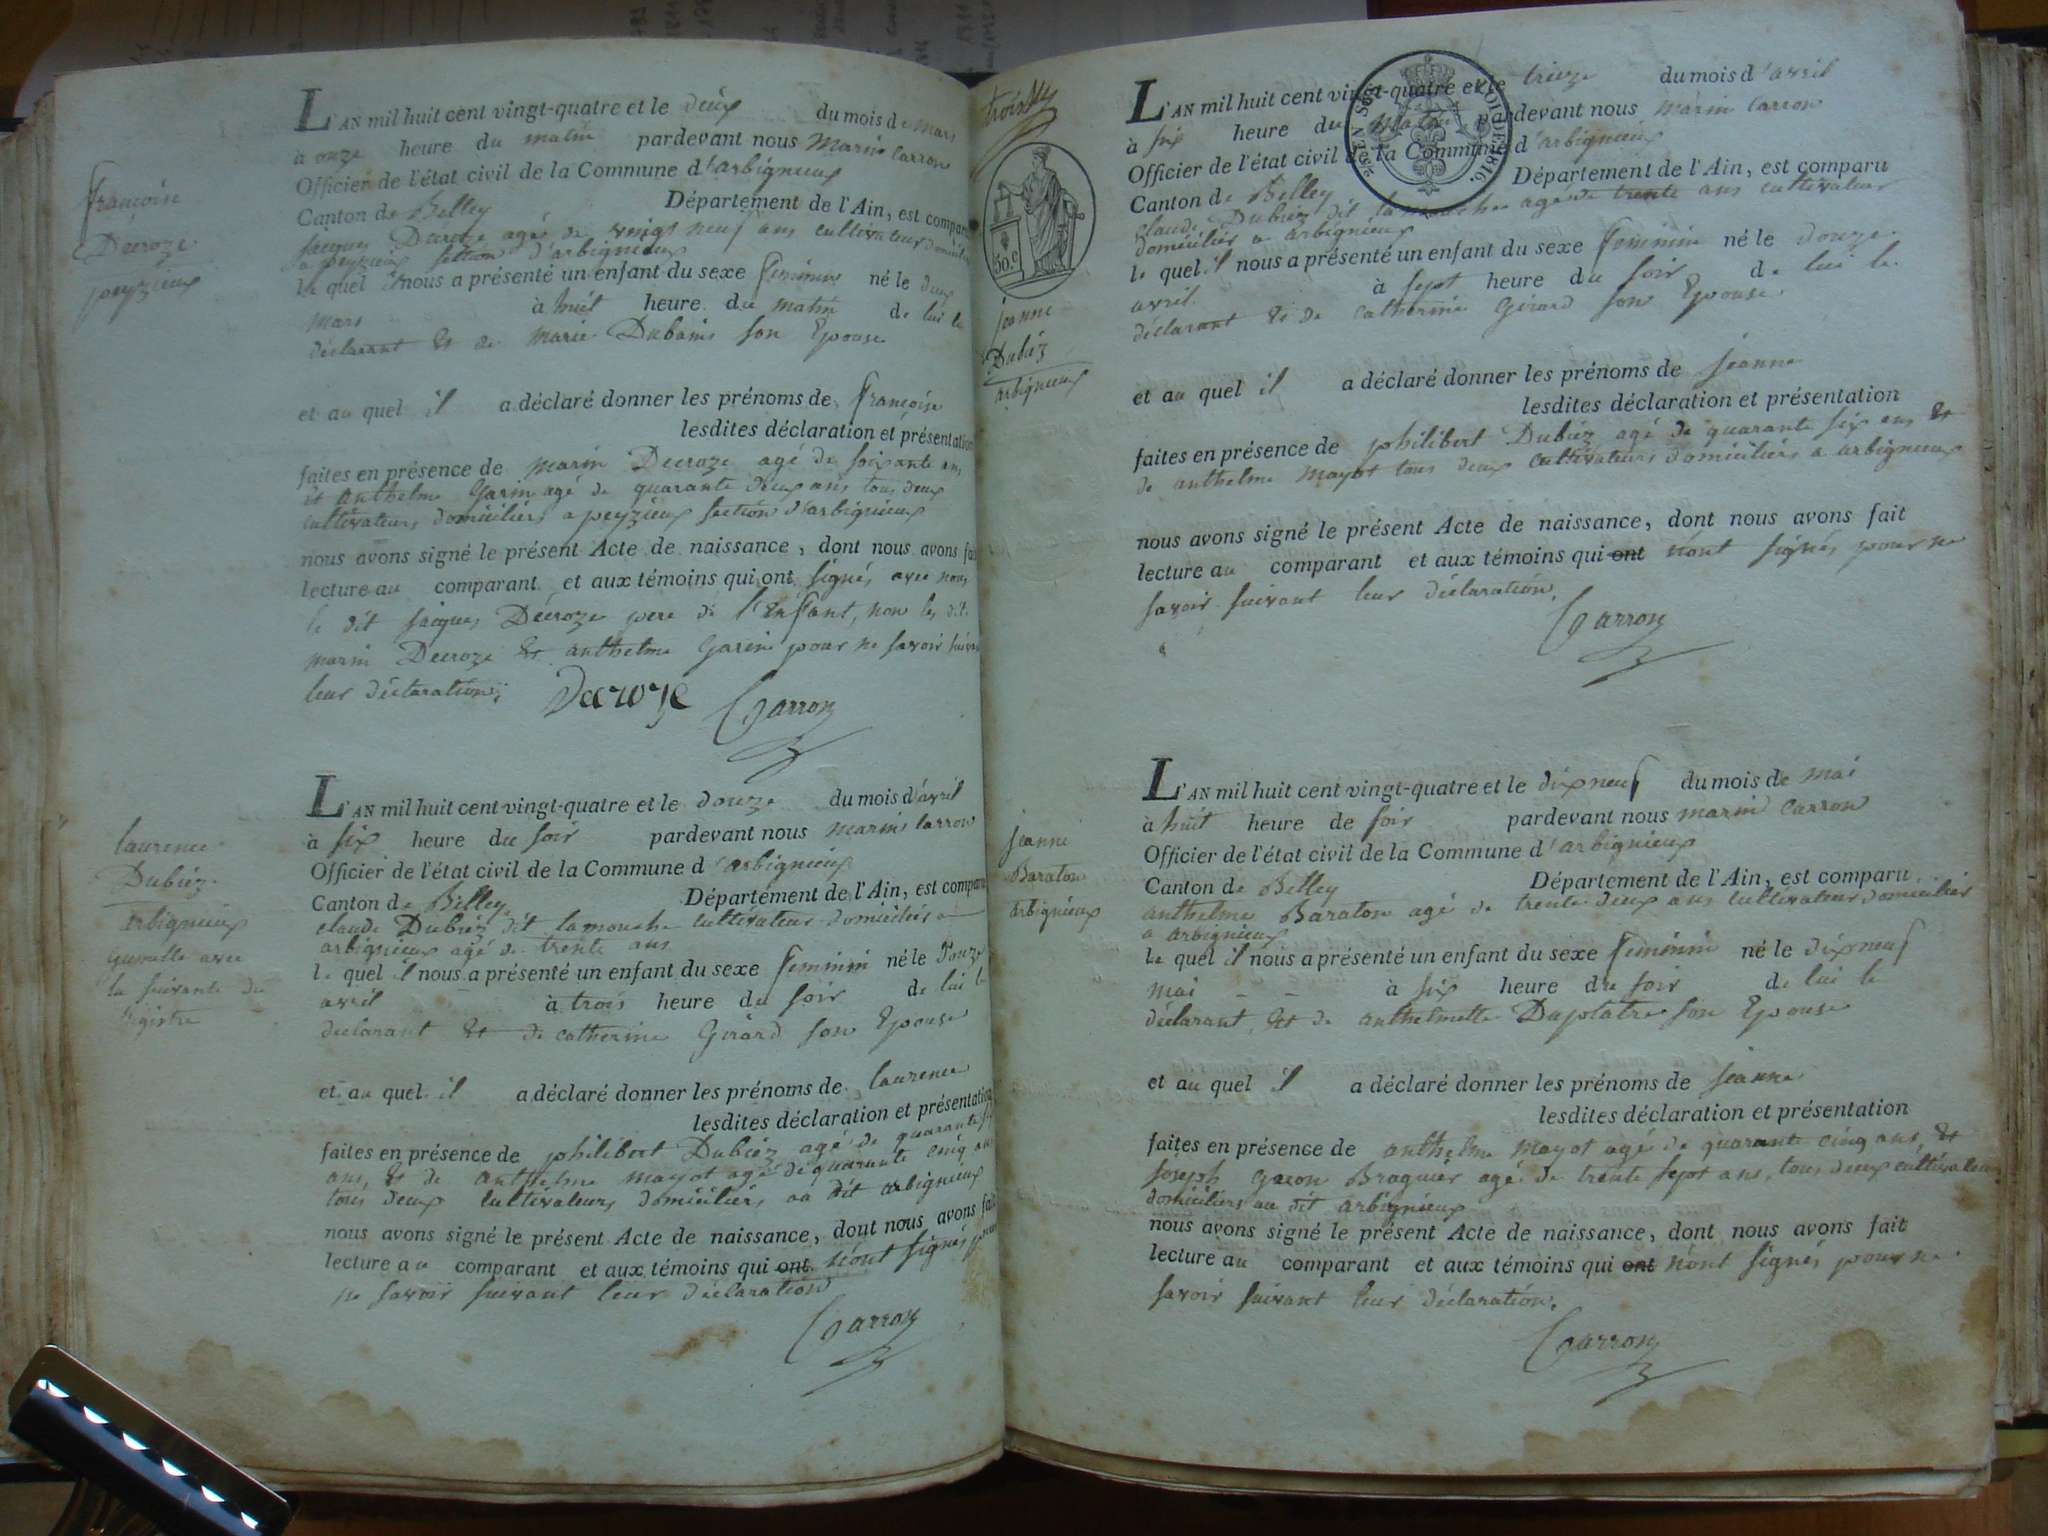 françoise
Decroze
peyzieux
L'AN mil huit cent vingt-quatre et le deux du mois de mars
à onze heure du matin pardevant nous Marin Carron
Officier de l'état civil de la Commune d'arbignieux
Canton de Belley Département de l'Ain, est comparu
jacques Decroze agé de vingt neuf ans cultivateur domicilié
a peyzieux section d'arbignieux
le quel il nous a présenté un enfant du sexe feminin né le deux
mars à huit heure du matin de lui le
déclarant & de marie Dubanis son Epouse
et au quel il a déclaré donner les prénoms de françoise
lesdites déclaration et présentation
faites en présence de marin Decroze agé de soixante ans
et anthelme Garin agé de quarante deux ans tous deux
cultivateurs domiciliés a peyzieux section d'arbignieux
nous avons signé le présent Acte de naissance, dont nous avons fait
lecture au comparant et aux témoins qui ont signés avec nous
le dit jacques Décroze pere de l'enfant, non les dit
marin Decroze & anthelme Garin pour ne savoir suivant
leur déclaration.
Decroze Carron
laurence
Dubiéz
arbignieux
gumelle avec
la suivante du
registre
L'AN mil huit cent vingt-quatre et le douze du mois d'avril
à six heure du soir pardevant nous marin Carron
Officier de l'état civil de la Commune d'arbignieux
Canton de Belley Département de l'Ain, est comparu
claude Dubiéz dit lamouche cultivateur domicilié a
arbignieux agé de trente ans
le quel il nous a présenté un enfant du sexe feminin né le Douze
avril à trois heure du soir de lui le
déclarant & de catherine Girard son Epouse
et au quel il a déclaré donner les prénoms de laurence
lesdites déclaration et présentation
faites en présence de philibert Dubiéz agé de quarante six
ans, & de anthelme mayot agé de quarante cinq ans
tous deux cultivateurs domiciliés au dit arbignieux
nous avons signé le présent Acte de naissance, dont nous avons fait
lecture au comparant et aux témoins qui ont n'ont signés pour
ne savoir suivant leur déclaration
Carron
trois
50.c
jeanne
Dubiéz
arbignieux
TIMB. ROYAL
LOI DE 1816.
L'AN mil huit cent vingt-quatre et le treize du mois d'avril
à six heure du matin pardevant nous marin Carron
Officier de l'état civil de la Commune d'arbignieux
Canton de Belley Département de l'Ain, est comparu
claude Dubiéz dit la mouche agé de trente ans cultivateur
domicilié a arbignieux
le quel il nous a présenté un enfant du sexe feminin né le douze
avril à sept heure du soir de lui le
déclarant & de catherine Girard son Epouse
et au quel il a déclaré donner les prénoms de jeanne
lesdites déclaration et présentation
faites en présence de philibert Dubiéz agé de quarante six ans &
de anthelme mayot tous deux cultivateurs domiciliés a arbignieux
nous avons signé le présent Acte de naissance, dont nous avons fait
lecture au comparant et aux témoins qui ont n'ont signés pour ne
savoir suivant leur déclaration.
Carron
jeanne
Baraton
arbignieux
L'AN mil huit cent vingt-quatre et le dix neuf du mois de mai
à huit heure de soir pardevant nous marin Carron
Officier de l'état civil de la Commune d'arbignieux
Canton de Belley Département de l'Ain, est comparu
anthelme Baraton agé de trente deux ans cultivateur domicilié
a arbignieux
le quel il nous a présenté un enfant du sexe feminin né le dix neuf
mai à six heure du soir de lui le
déclarant & de anthelmette Duplatre son Epouse
et au quel il a déclaré donner les prénoms de jeanne
lesdites déclaration et présentation
faites en présence de anthelme mayot agé de quarante cinq ans, &
joseph gacon Braguier agé de trente sept ans, tous deux cultivateurs
domiciliés au dit arbignieux
nous avons signé le présent Acte de naissance, dont nous avons fait
lecture au comparant et aux témoins qui ont n'ont signés pour ne
savoir suivant leur déclaration.
Carron